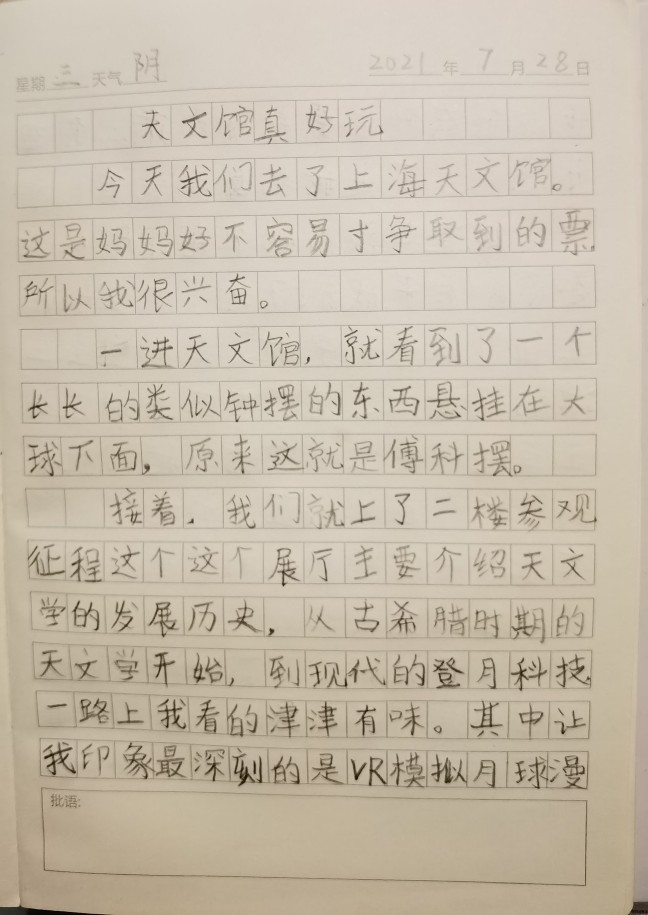 星期 三 天气 阴 2021 年 7 月 28 日
天文馆真好玩
今天我们去了上海天文馆。
这是妈妈好不容易寸争取到的票,
所以我很兴奋。
一进天文馆,就看到了一个
长长的类似钟摆的东西悬挂在大
球下面,原来这就是傅科摆。
接着,我们就上了二楼参观
征程这个这个展厅主要介绍天文
学的发展历史,从古希腊时期的
天文学开始,到现代的登月科技
一路上我看的津津有味。其中让
我印象最深刻的是VR模拟月球漫
批语: